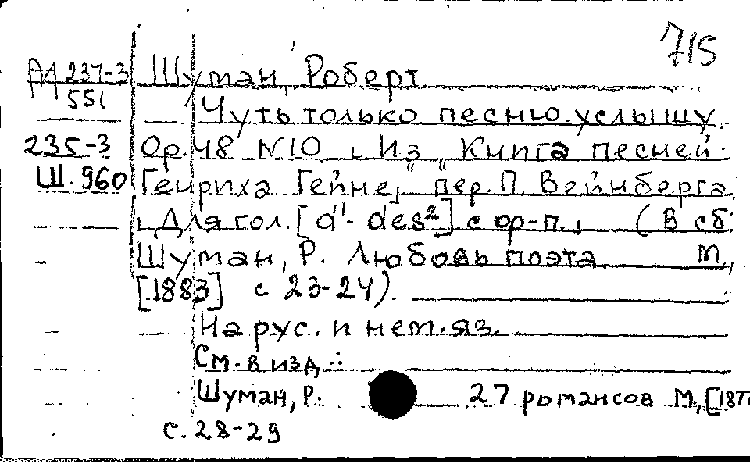 715
А1 237-3 Шуман, Роберт
551 Чуть только песню услышу.
235-3 Ор. 48 N10 , Из „Книга песней
Ш. 960 Генриха Гейне," пер. П. Вейнберга
, Для гол. [d¹- des²] с ор-п., ( В сб:
Шуман, Р. Любовь поэта М.,
[1883] с 23-24).
На рус. и нем. яз.
См. в изд.:
Шуман, Р. 27 романсов М, [187
с. 28-29